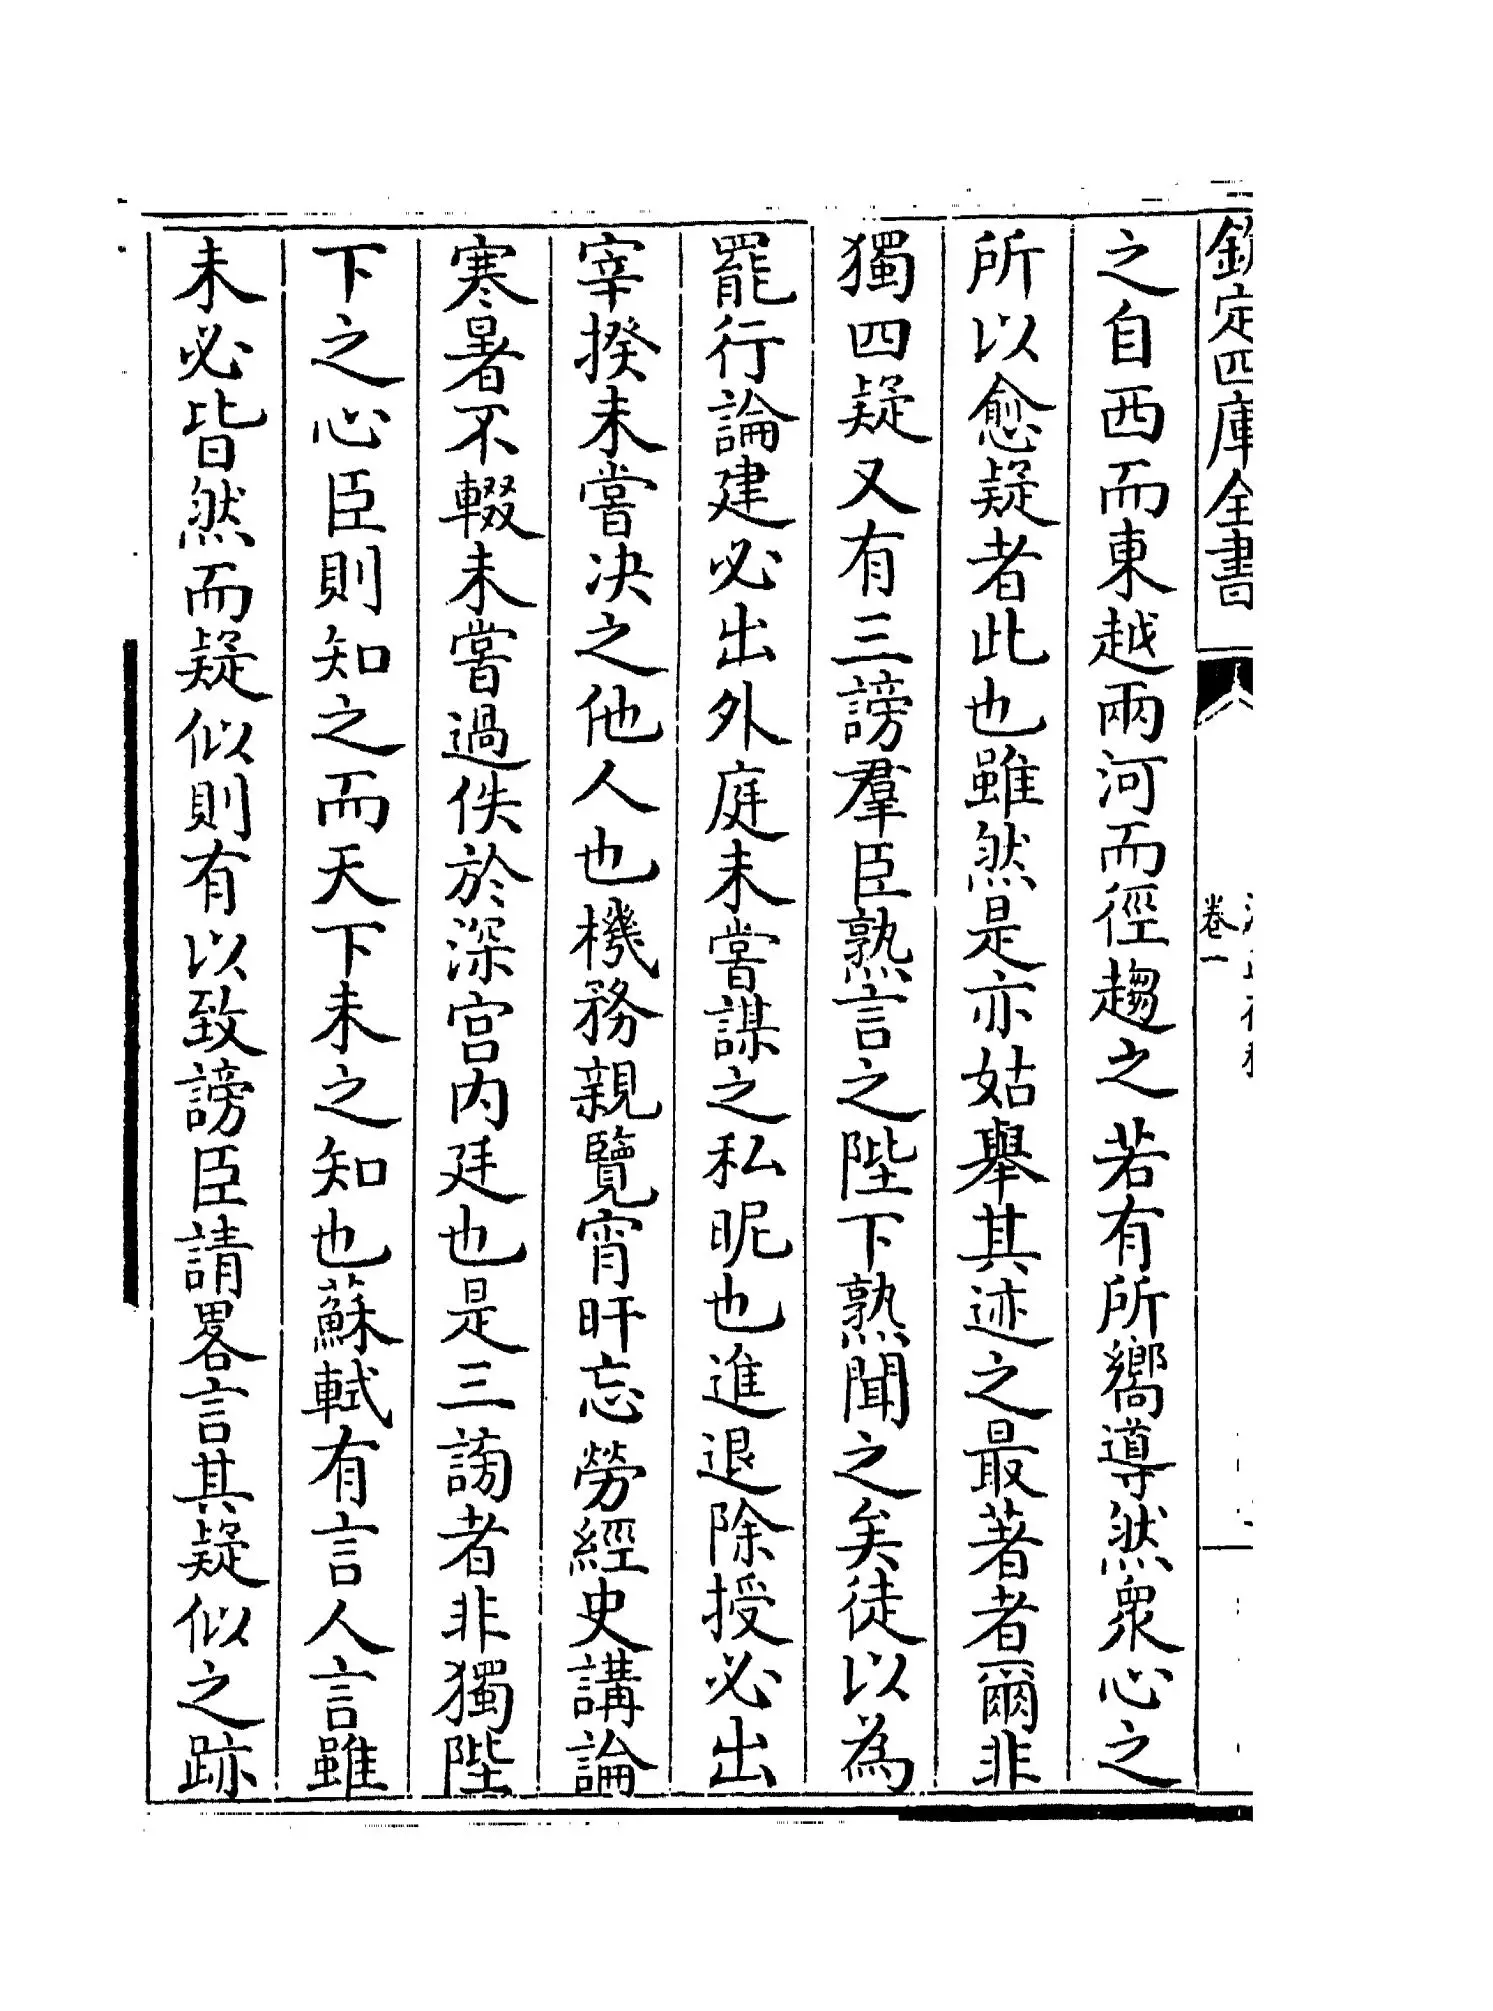 欽定四庫全書
卷一
之自西而東越兩河而徑趨之若有所嚮導然衆心之
所以愈疑者此也雖然是亦姑舉其迹之最著者爾非
獨四疑又有三謗羣臣熟言之陛下熟聞之矣徒以為
罷行論建必出外庭未嘗謀之私昵也進退除授必出
宰揆未嘗決之他人也機務親覽宵旰忘勞經史講論
寒暑不輟未嘗過佚於深宫内廷也是三謗者非獨陛
下之心臣則知之而天下未之知也蘇軾有言人言雖
未必皆然而疑似則有以致謗臣請畧言其疑似之跡